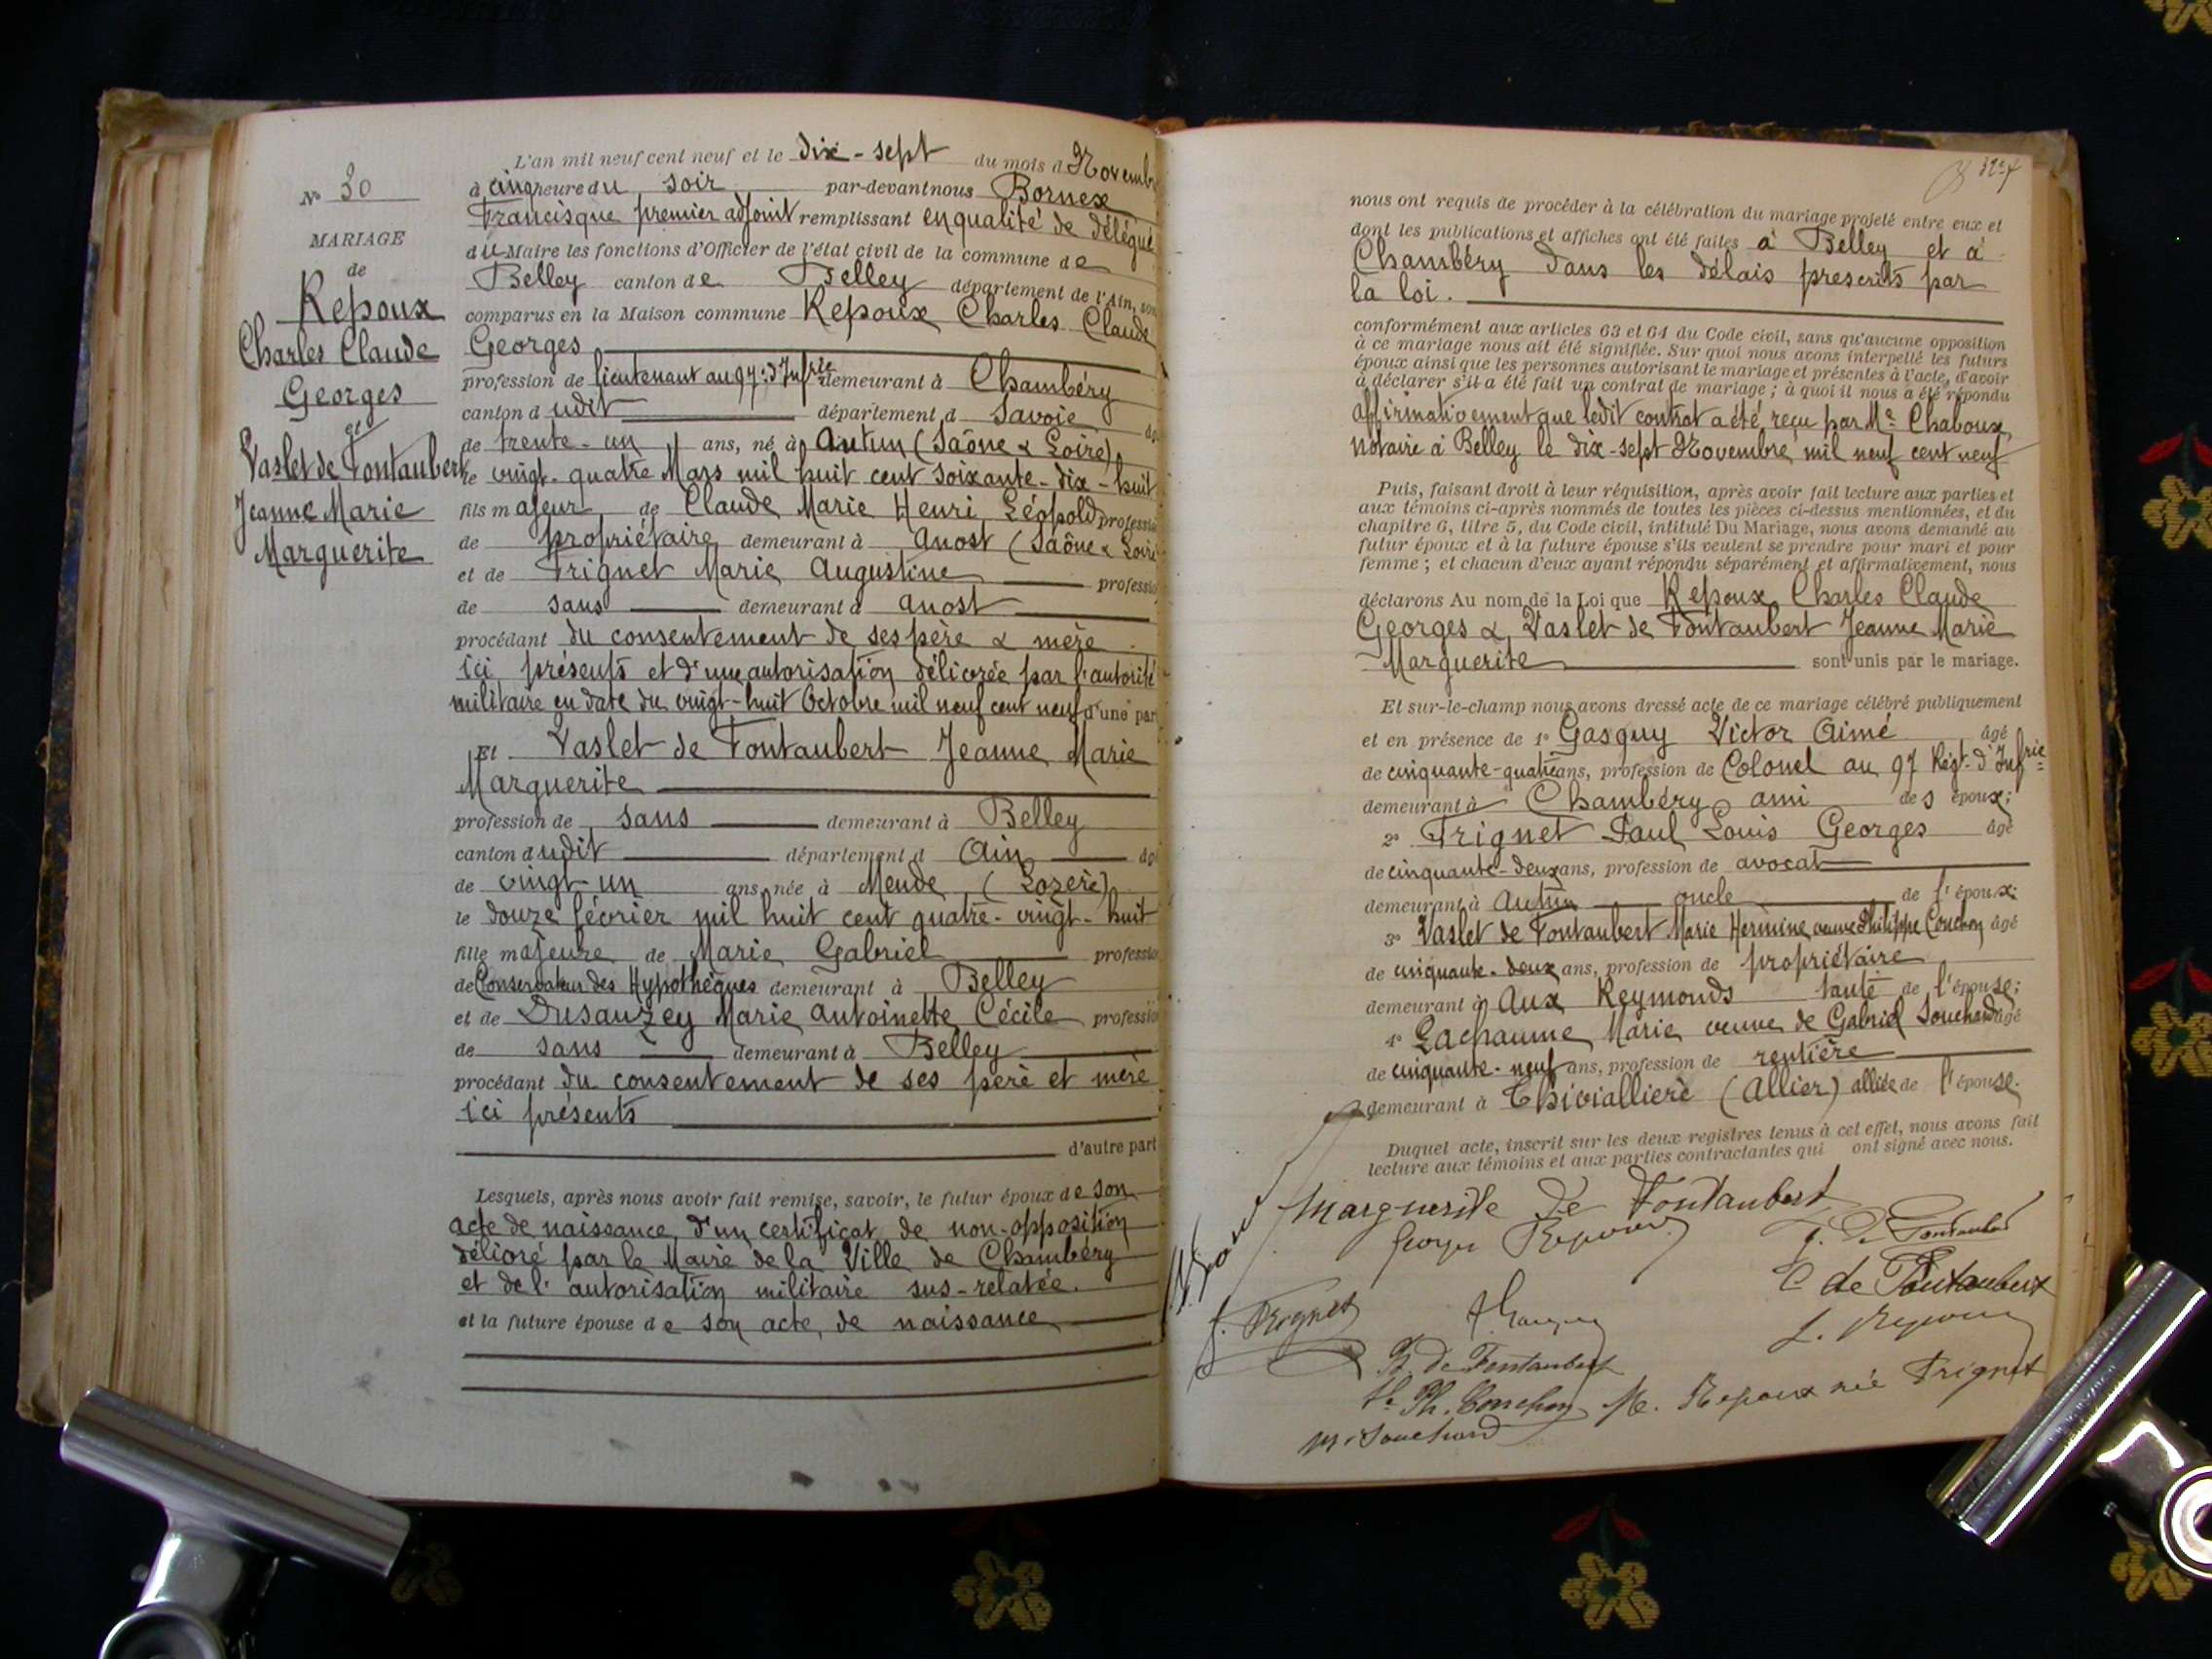 N° 30
MARIAGE
de
Repoux
Charles Claude
Georges
et
Vaslet de Fontaubert
Jeanne Marie
Marguerite
L'an mil neuf cent neuf et le dix-sept du mois d Novemb
à cinq heure du soir par-devant nous Bornex
Francisque premier adjoint remplissant en qualité de délégué
du Maire les fonctions d'Officier de l'état civil de la commune de
Belley canton de Belley département de l'Ain, son
comparus en la Maison commune Repoux Charles Claude
Georges
profession de lieutenant au 97e d'Infrie demeurant à Chambéry
canton d udit département d Savoie âg
de trente-un ans, né à Autun (Saône & Loire)
le vingt-quatre Mars mil huit cent soixante-dix-huit
fils majeur de Claude Marie Henri Léopold professi
de propriétaire demeurant à Anost (Saône & Loire
et de Trignet Marie Augustine professio
de sans demeurant à Anost
procédant du consentement de ses père & mère
ici présents et d'une autorisation délivrée par l'autorité
militaire en date du vingt-huit Octobre mil neuf cent neuf d'une par
Et Vaslet de Fontaubert Jeanne Marie
Marguerite
profession de sans demeurant à Belley
canton dudit département d Ain âg
de vingt-un ans, née à Mende (Lozère)
le douze février mil huit cent quatre-vingt-huit
fille majeure de Marie Gabriel professio
de Conservateur des Hypothèques demeurant à Belley
et de Dusauzey Marie Antoinette Cécile professio
de sans demeurant à Belley
procédant du consentement de ses père et mère
ici présents
d'autre part
Lesquels, après nous avoir fait remise, savoir, le futur époux de son
acte de naissance, d'un certificat de non-opposition
délivré par le Maire de la Ville de Chambéry
et de l'autorisation militaire sus-relatée.
et la future épouse de son acte de naissance
nous ont requis de procéder à la célébration du mariage projeté entre eux et
dont les publications et affiches ont été faites à Belley et à
Chambéry dans les délais prescrits par
la loi.
conformément aux articles 63 et 64 du Code civil, sans qu'aucune opposition
à ce mariage nous ait été signifiée. Sur quoi nous avons interpellé les futurs
époux ainsi que les personnes autorisant le mariage et présentes à l'acte, d'avoir
à déclarer s'il a été fait un contrat de mariage ; à quoi il nous a été répondu
affirmativement que ledit contrat a été reçu par Me Chaboux,
notaire à Belley le dix-sept Novembre mil neuf cent neuf
Puis, faisant droit à leur réquisition, après avoir fait lecture aux parties et
aux témoins ci-après nommés de toutes les pièces ci-dessus mentionnées, et du
chapitre 6, titre 5, du Code civil, intitulé Du Mariage, nous avons demandé au
futur époux et à la future épouse s'ils veulent se prendre pour mari et pour
femme ; et chacun d'eux ayant répondu séparément et affirmativement, nous
déclarons Au nom de la Loi que Repoux Charles Claude
Georges & Vaslet de Fontaubert Jeanne Marie
Marguerite sont unis par le mariage.
Et sur-le-champ nous avons dressé acte de ce mariage célébré publiquement
et en présence de 1° Gasquy Victor Aimé âgé
de cinquante-quatre ans, profession de Colonel au 97 Régt. d'Infrie
demeurant à Chambéry ami des époux;
2° Trignet Paul Louis Georges âgé
de cinquante-deux ans, profession de avocat
demeurant à Autun oncle de l'époux;
3° Vaslet de Fontaubert Marie Hermine veuve Philippe Conchon âgé
de cinquante-deux ans, profession de propriétaire
demeurant à Aux Reymonds tante de l'épouse;
4° Lachaume Marie veuve de Gabriel Souchard âgé
de cinquante-neuf ans, profession de rentière
demeurant à Thivialliere (Allier) alliée de l'épouse.
Duquel acte, inscrit sur les deux registres tenus à cet effet, nous avons fait
lecture aux témoins et aux parties contractantes qui ont signé avec nous.
Marguerite de Fontaubert
Georges Repoux
G. de Fontaubert
C de Fontaubert
Trignet
L. Repoux
de Fontaubert
Ve Ph. Conchon M. Repoux née Trignet
M. Souchard